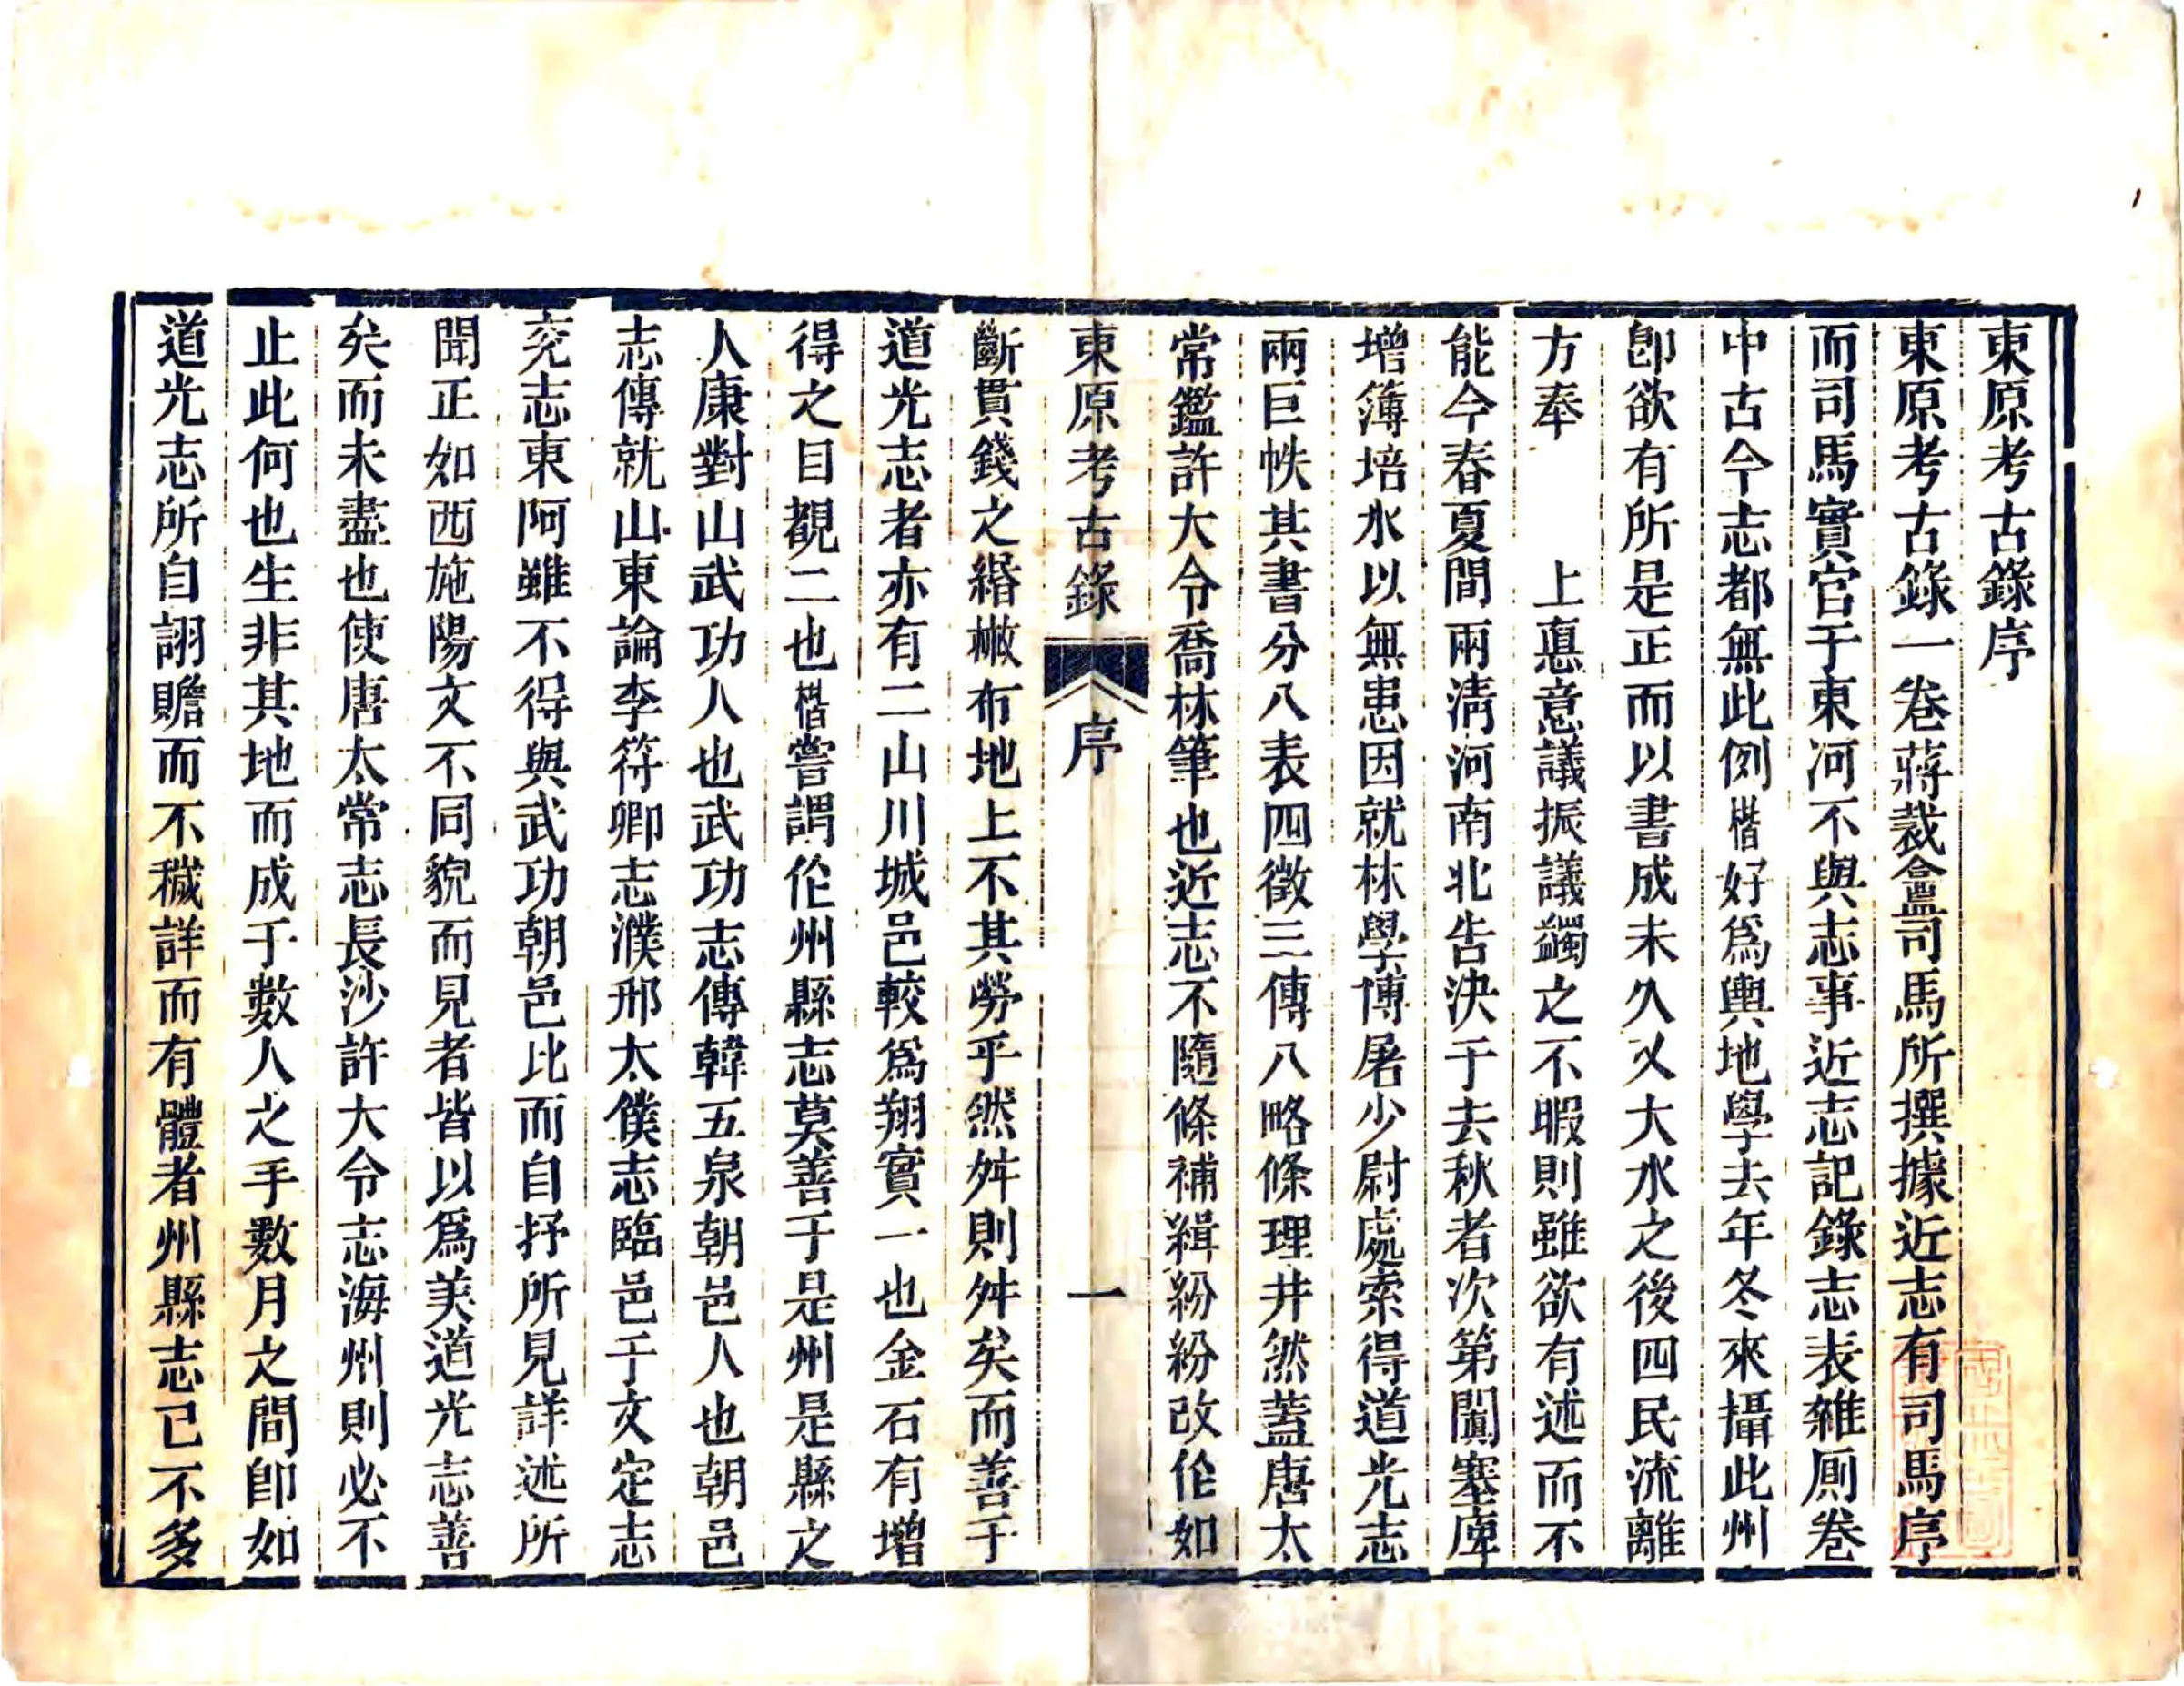 東原考古錄序
東原考古錄一卷蔣裁盦司馬所撰據近志有司馬序
而司馬實官于東河不與志事近志記錄志表雜厠卷
中古今志都無此例楷好爲輿地學去年冬來攝此州
卽欲有所是正而以書成未久乂大水之後四民流離
方奉　　上恩意議振議蠲之不暇則雖欲有述而不
能今春夏間兩淸河南北告決于去秋者次第闐塞庳
增簿培水以無患因就林學博屠少尉處索得道光志
兩巨帙其書分八表四徵三傳八略條理井然蓋唐太
常鑑許大令喬林筆也近志不隨條補緝紛紛改作如
東原考古錄　序　一
斷貫錢之緡檄布地上不其勞乎然舛則舛矣而善于
道光志者亦有二山川城邑較爲翔實一也金石有增
得之目覩二也楷嘗謂作州縣志莫善于是州是縣之
人康對山武功人也武功志傳韓五泉朝邑人也朝邑
志傳就山東論李符卿志濮邢太僕志臨邑于文定志
兖志東阿雖不得與武功朝邑比而自抒所見詳述所
聞正如西施陽文不同貌而見者皆以爲美道光志善
矣而未盡也使唐太常志長沙許大令志海州則必不
止此何也生非其地而成于數人之手數月之間卽如
道光志所自詡贍而不穢詳而有體者州縣志已不多